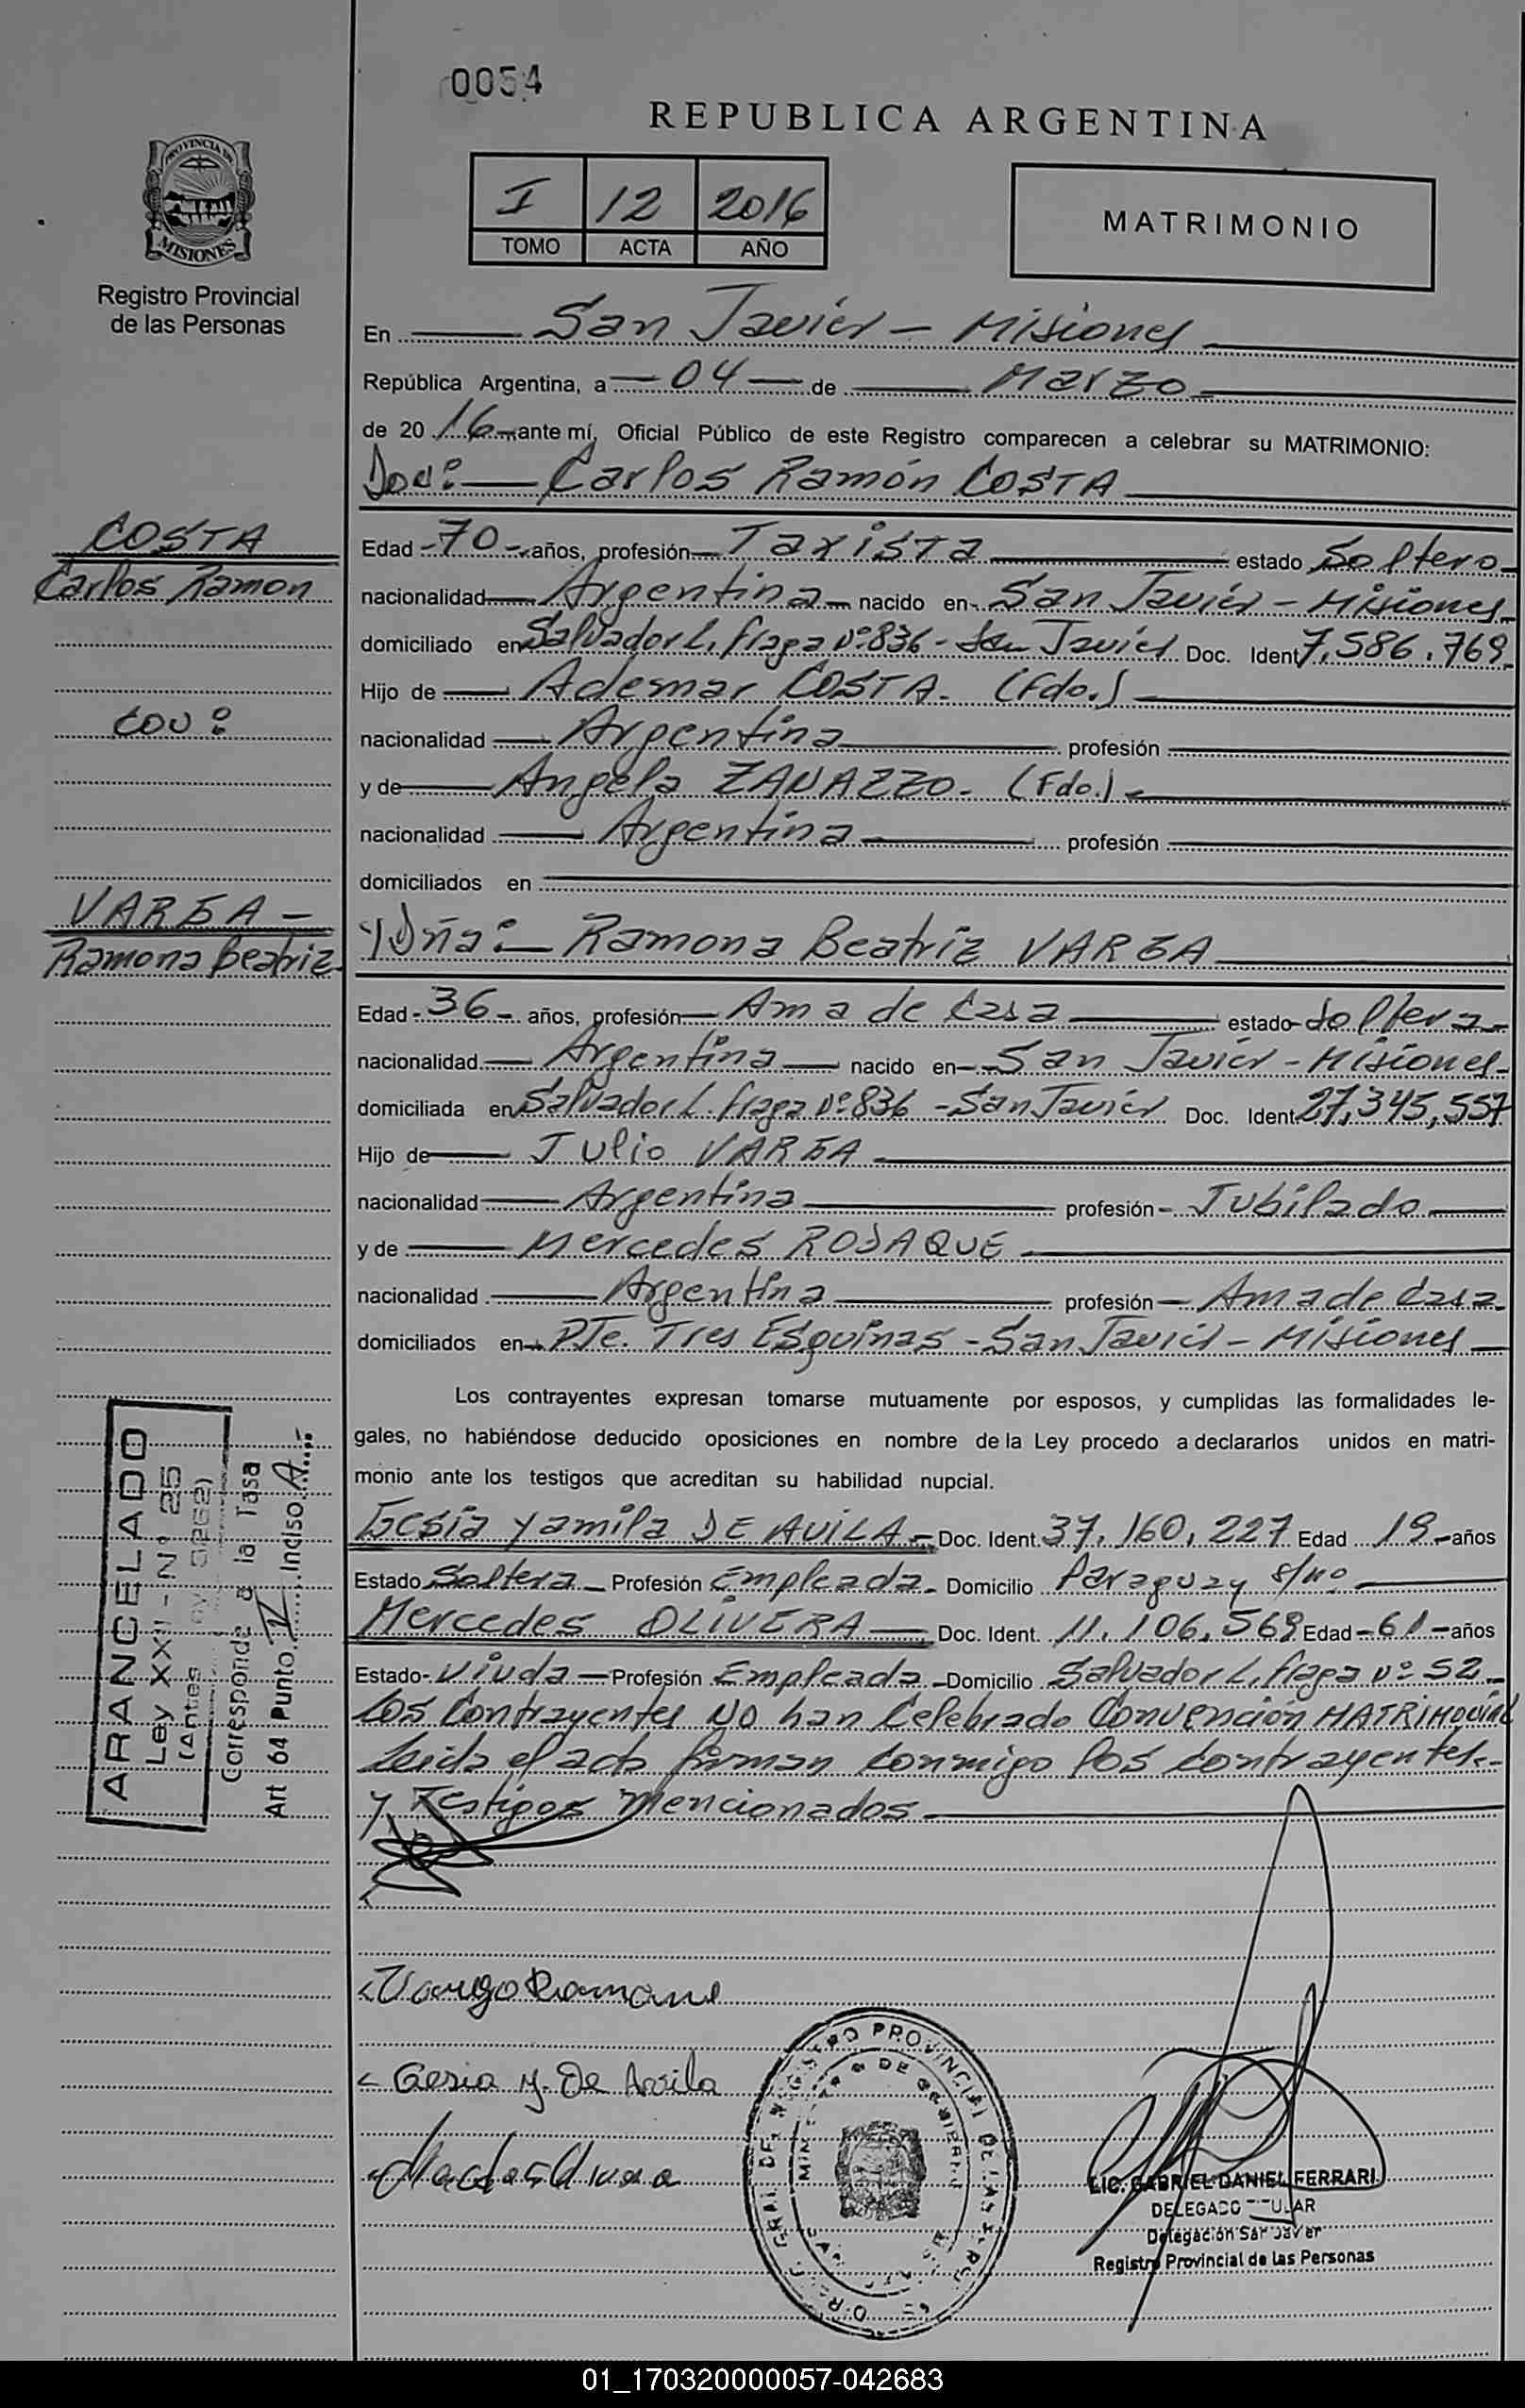 0054
REPUBLICA ARGENTINA
PROVINCIA DE
MISIONES
Registro Provincial
de las Personas
I 12 2016
TOMO ACTA AÑO
MATRIMONIO
En San Javier - Misiones
República Argentina, a 04 de Marzo
de 2016 ante mí, Oficial Público de este Registro comparecen a celebrar su MATRIMONIO:
Don: Carlos Ramón COSTA
COSTA
Carlos Ramon
Edad 70 años, profesión Taxista estado Soltero
nacionalidad Argentina nacido en San Javier - Misiones
domiciliado en Salvador L. Fraga Nº 836 - San Javier Doc. Ident 7.586.769
Hijo de Ademar COSTA. (Fdo.)
con:
nacionalidad Argentina profesión
y de Angela ZANAZZO. (Fdo.)
nacionalidad Argentina profesión
domiciliados en
VARGA -
Ramona Beatriz
y Dña: Ramona Beatriz VARGA
Edad 36 años, profesión Ama de Casa estado Soltera
nacionalidad Argentina nacido en San Javier - Misiones
domiciliada en Salvador L. Fraga Nº 836 - San Javier Doc. Ident. 27,345,557
Hijo de Julio VARGA
nacionalidad Argentina profesión Jubilado
y de Mercedes ROJAQUE
nacionalidad Argentina profesión Ama de Casa
domiciliados en Pje. Tres Esquinas - San Javier - Misiones
Los contrayentes expresan tomarse mutuamente por esposos, y cumplidas las formalidades le-
gales, no habiéndose deducido oposiciones en nombre de la Ley procedo a declararlos unidos en matri-
monio ante los testigos que acreditan su habilidad nupcial.
Gesia Yamila DE AVILA Doc. Ident. 37,160,227 Edad 19 años
Estado Soltera Profesión Empleada Domicilio Paraguay s/nº
Mercedes OLIVERA Doc. Ident. 11.106.569 Edad 61 años
Estado Viuda Profesión Empleada Domicilio Salvador L. Fraga Nº 52
Los Contrayentes NO han Celebrado Convención MATRIMONIAL
Leida el acta firman conmigo los contrayentes
y Testigos mencionados
ARANCELADO
Ley XXII - Nº 25
(Antes Ley
Corresponde a la Tasa
Art 64 Punto IV Inciso A
Varga Ramona
Gesia Y. De Avila
REGISTRO PROVINCIAL DE LAS
LIC. GABRIEL DANIEL FERRARI
DELEGADO TITULAR
Delegación San Javier
Registro Provincial de las Personas
01_170320000057-042683